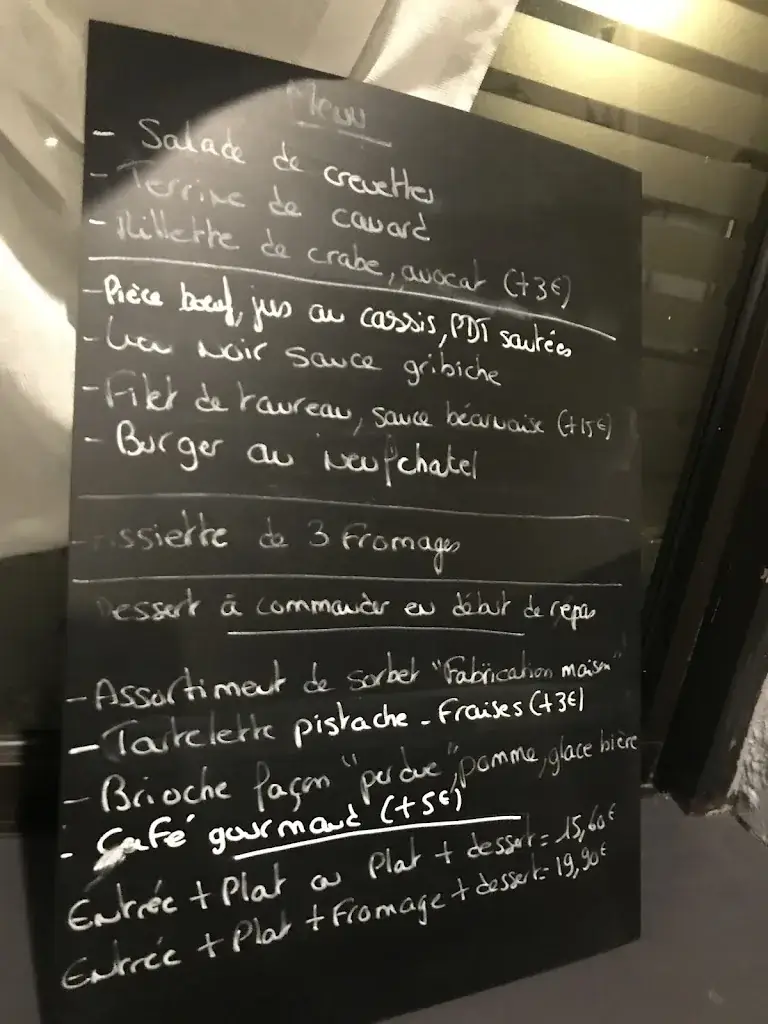 Menu
- Salade de crevettes
- Terrine de canard
- Rillette de crabe, avocat (+3€)
- Pièce boeuf, jus au cassis, PDT sautées
- Lieu noir sauce gribiche
- Filet de taureau, sauce béarnaise (+15€)
- Burger au neufchatel
- Assiette de 3 Fromages
Dessert à commander en début de repas
- Assortiment de sorbet "Fabrication maison"
- Tartelette pistache - Fraises (+3€)
- Brioche façon "perdue", pomme, glace bière
- Café gourmand (+5€)
Entrée + Plat ou Plat + dessert = 15,60€
Entrée + Plat + Fromage + dessert = 19,90€